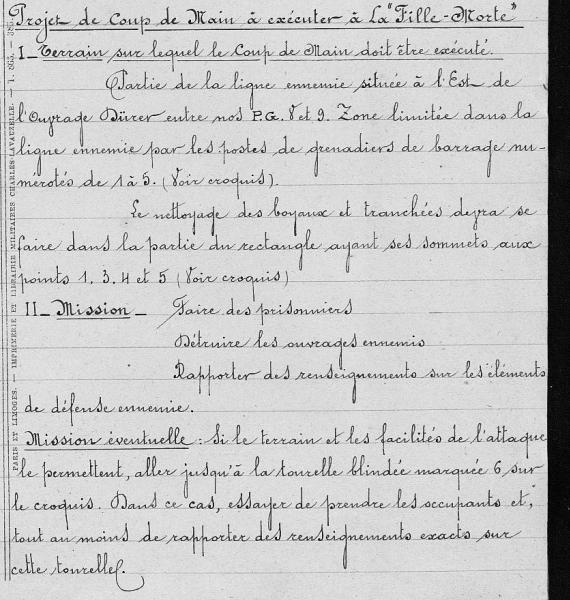 Projet de Coup de Main à exécuter à La "Fille-Morte"
I_Terrain sur lequel le Coup de Main doit être exécuté.
Partie de la ligne ennemie située à l'Est de
l'Ouvrage Dürer entre nos P.G. 8 et 9. Zone limitée dans la
ligne ennemie par les postes de grenadiers de barrage nu-
mérotés de 1 à 5. (Voir croquis).
Le nettoyage des boyaux et tranchées devra se
faire dans la partie du rectangle ayant ses sommets aux
points 1. 3. 4 et 5 (Voir croquis)
II_ Mission _ Faire des prisonniers
Détruire les ouvrages ennemis
Rapporter des renseignements sur les éléments
de défense ennemie.
Mission éventuelle : Si le terrain et les facilités de l'attaque
le permettent, aller jusqu'à la tourelle blindée marquée 6, sur
le croquis. Dans ce cas, essayer de prendre les occupants et,
tout au moins de rapporter des renseignements exacts sur
cette tourelle.
PARIS ET LIMOGES. — IMPRIMERIE ET LIBRAIRIE MILITAIRES CHARLES-LAVAUZELLE. —